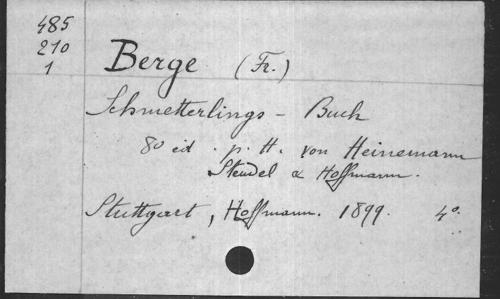 485
210
1
Berge (Fr.)
Schmetterlings - Buch
8o ed. p. H. von Heinemann
Steudel & Hoffmann.
Stuttgart, Hoffmann. 1899. 4o.